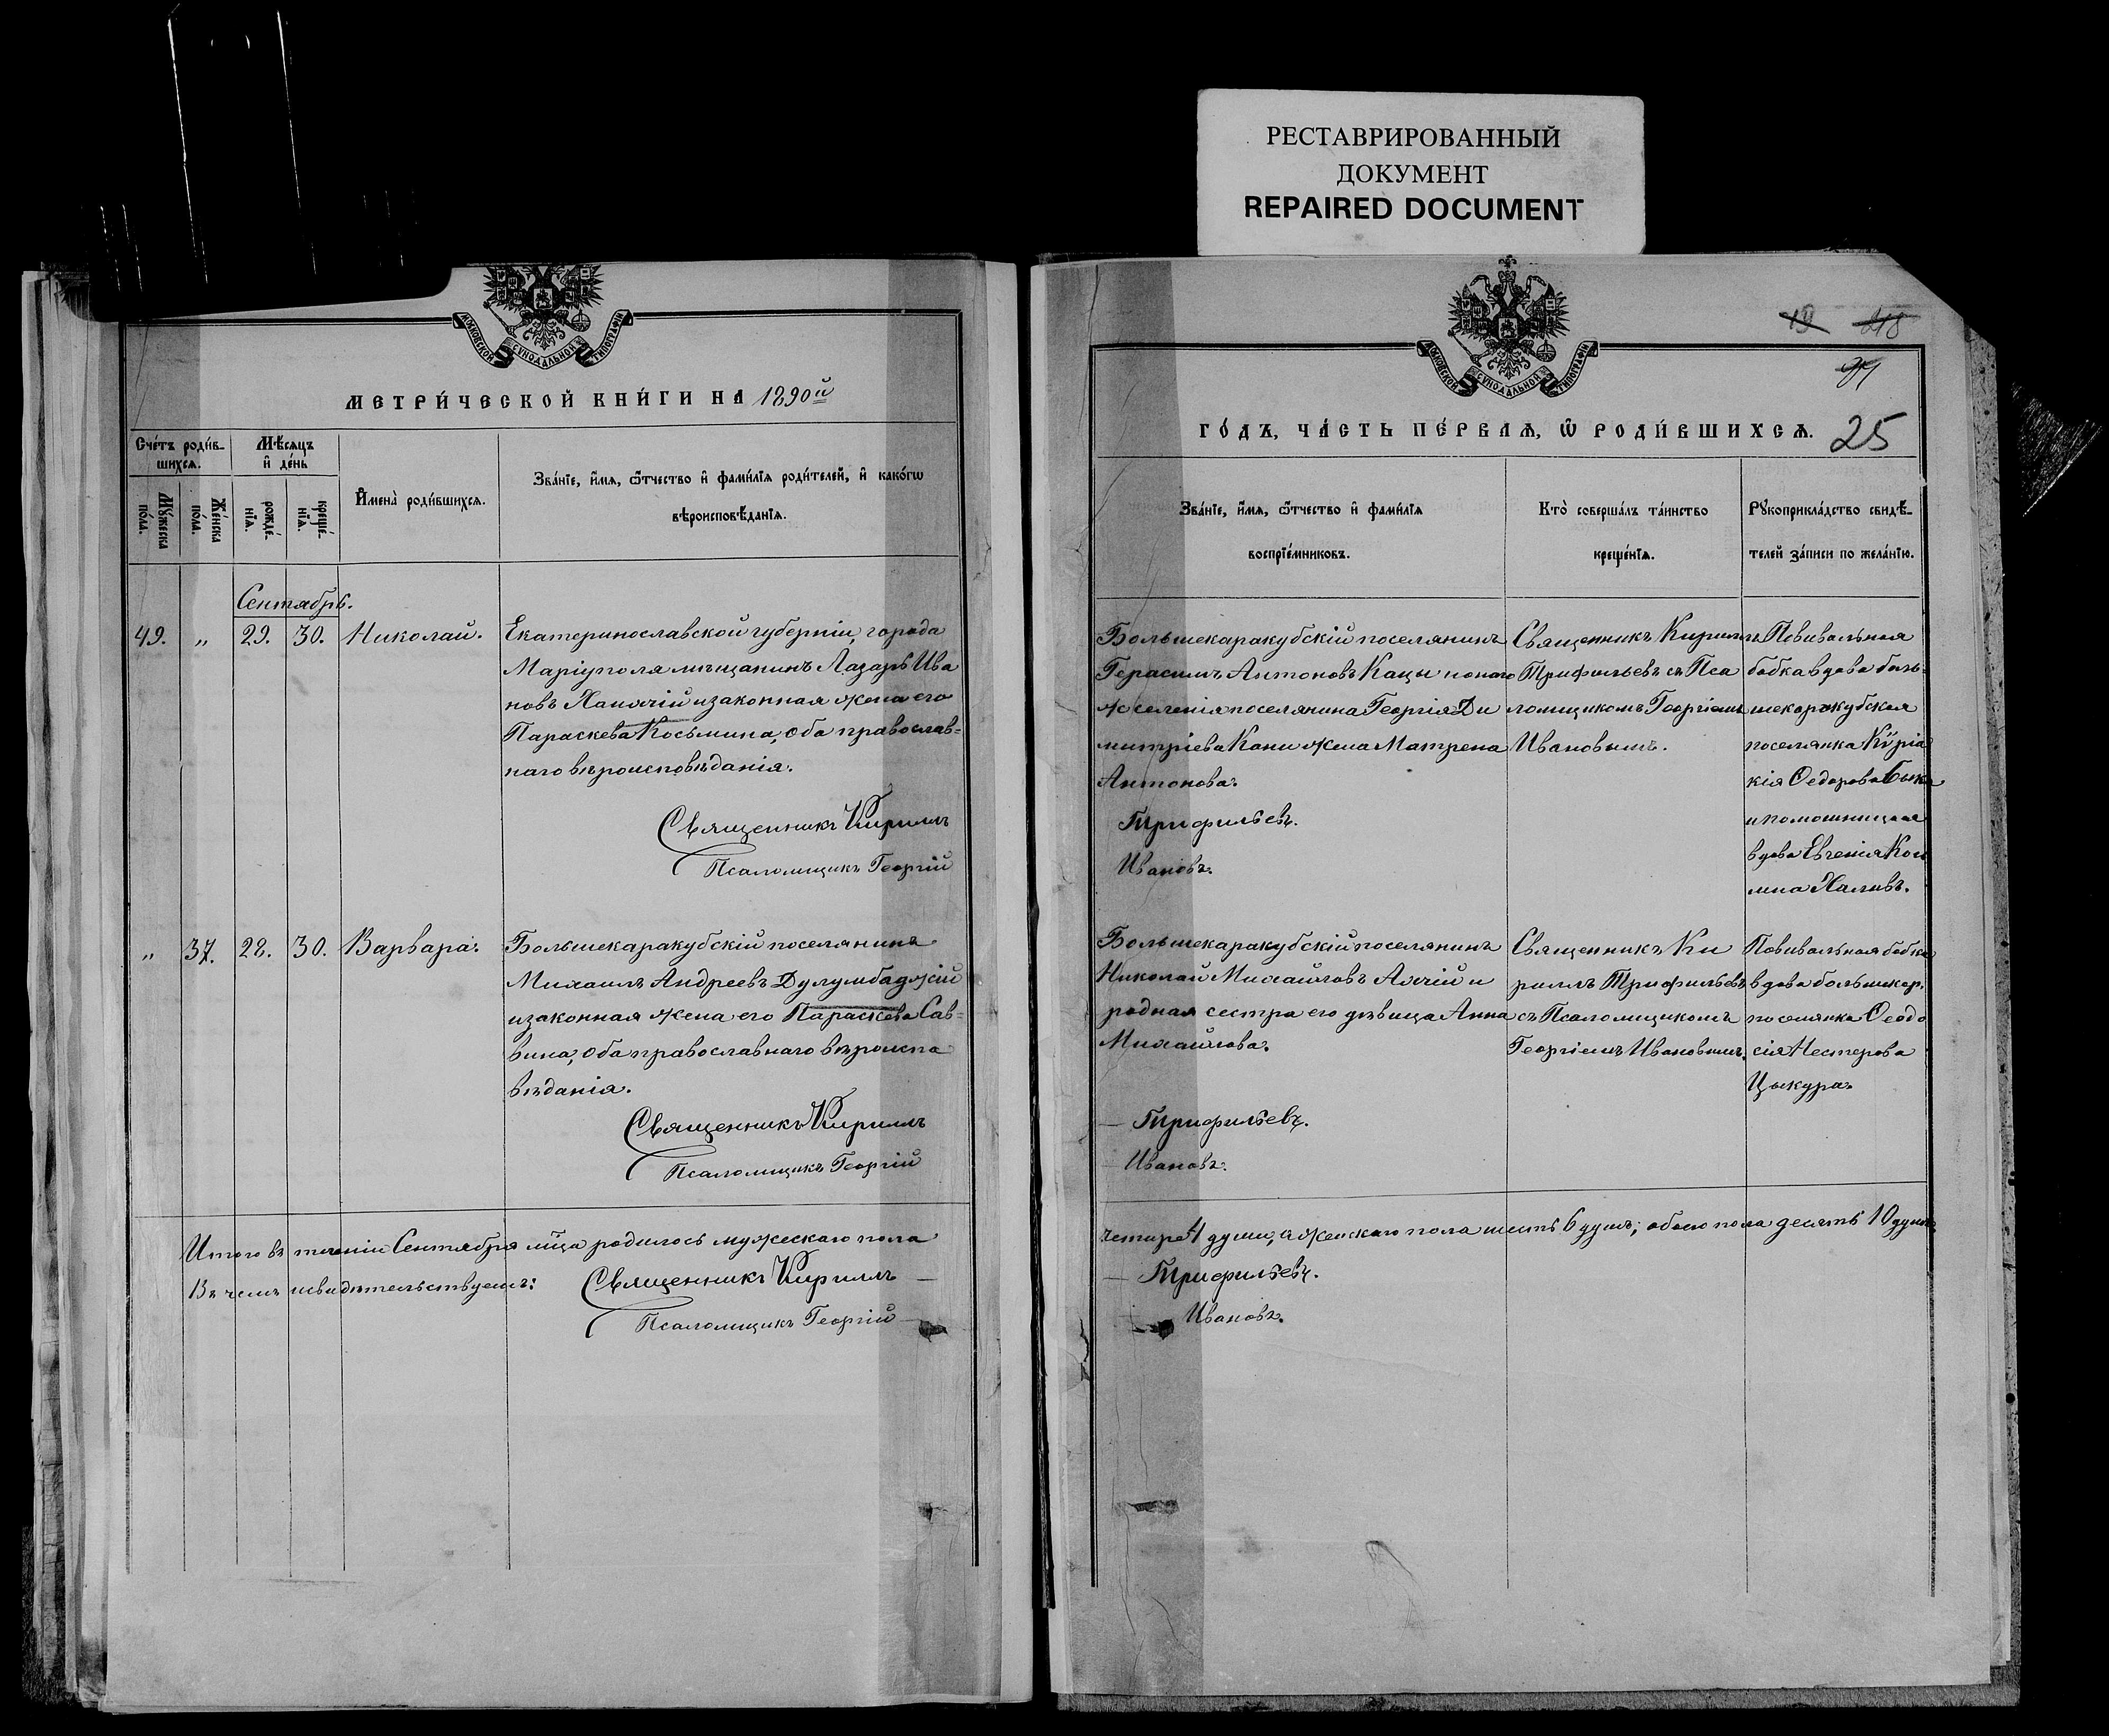 РЕСТАВРИРОВАННЫЙ
ДОКУМЕНТ
REPAIRED DOCUMENT
МОСКОВСКОЙ СУНОДАЛЬНОЙ ТИПОГРАФІИ
МЕТРИ́ЧЕСКОЙ КНИ́ГИ НА 1890й
Сче́тъ роди́в-
шихсѧ.
Мѣ́сѧцъ
и҆ де́нь
Мꙋ́жеска
по́ла.
Же́нска
по́ла.
рожде́-
нїѧ.
креще́-
нїѧ.
И҆мена̀ роди́вшихсѧ.
Зва́нїе, и҆́мѧ, ѻ҆́тчество и҆ фами́лїѧ роди́телей, и҆ како́гѡ
вѣроисповѣ́данїѧ.
Сентябрь.
49. „ 29. 30. Николай.
Екатеринославской губерніи, города
Маріуполя мѣщанинъ Лазарь Ива
новъ Хаиячій и законная жена его
Параскева Косьмина, оба православ=
наго вѣроисповѣданія.
Священникъ Кириллъ
Псаломщикъ Георгій
„ 37. 28. 30. Варвара.
Большекаракубскій поселянинъ
Михаилъ Андреевъ Дулумбаджій
и законная жена его Параскева Сав=
вина, оба православнаго вѣроиспо
вѣданія.
Священникъ Кириллъ
Псаломщикъ Георгій
Итого въ теченіи Сентября мѣ̃ца родилось мужескаго пола
Въ чемъ и свидѣтельствуемъ: Священникъ Кириллъ
Псаломщикъ Георгій
19 218
МОСКОВСКОЙ СУНОДАЛЬНОЙ ТИПОГРАФІИ
ГО́ДЪ, ЧА́СТЬ ПЕ́РВАѦ, Ѡ҆ РОДИ́ВШИХСѦ. 25
Зва́нїе, и҆́мѧ, ѻ҆́тчество и҆ фами́лїѧ
воспрїе́мниковъ.
Кто̀ соверша́лъ та́инство
креще́нїѧ.
Рꙋкоприкла́дство свидѣ́-
телей за́писи по жела́нїю.
Большекаракубскій поселянинъ
Герасимъ Антоновъ Кацы и онаго
же селенія поселянина Георгія Ди
митріева Кани жена Матрена
Антонова.
Трифильевъ.
Ивановъ.
Священникъ Кириллъ
Трифильевъ съ Пса
ломщикомъ Георгіемъ
Ивановымъ.
Повивальная
бабка вдова боль=
шекаракубская
поселянка Кѷріа
кія Ѳедорова Быка
и помошница ея
вдова Евгенія Кос
мина Халивъ.
Большекаракубскій поселянинъ
Николай Михайловъ Ахчій и
родная сестра его дѣвица Анна
Михайлова.
Трифильевъ.
Ивановъ.
Священникъ Ки
риллъ Трифильевъ
съ Псаломщикомъ
Георгіемъ Ивановымъ.
Повивальная бабка
вдова большекар.
поселянка Ѳеодо
сія Нестерова
Цыкура.
четыре 4 души, а женскаго пола шесть 6 душъ; обоего пола десять 10 душъ.
Трифильевъ.
Ивановъ.